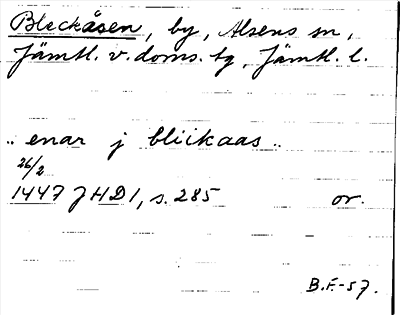 Bleckåsen, by, Alsens sn,
Jämtl. v. doms. tg, Jämtl. l.
.. enar j bliikaas ..
26/2
1447 JHD1, s. 285 or.
B.F.-57.